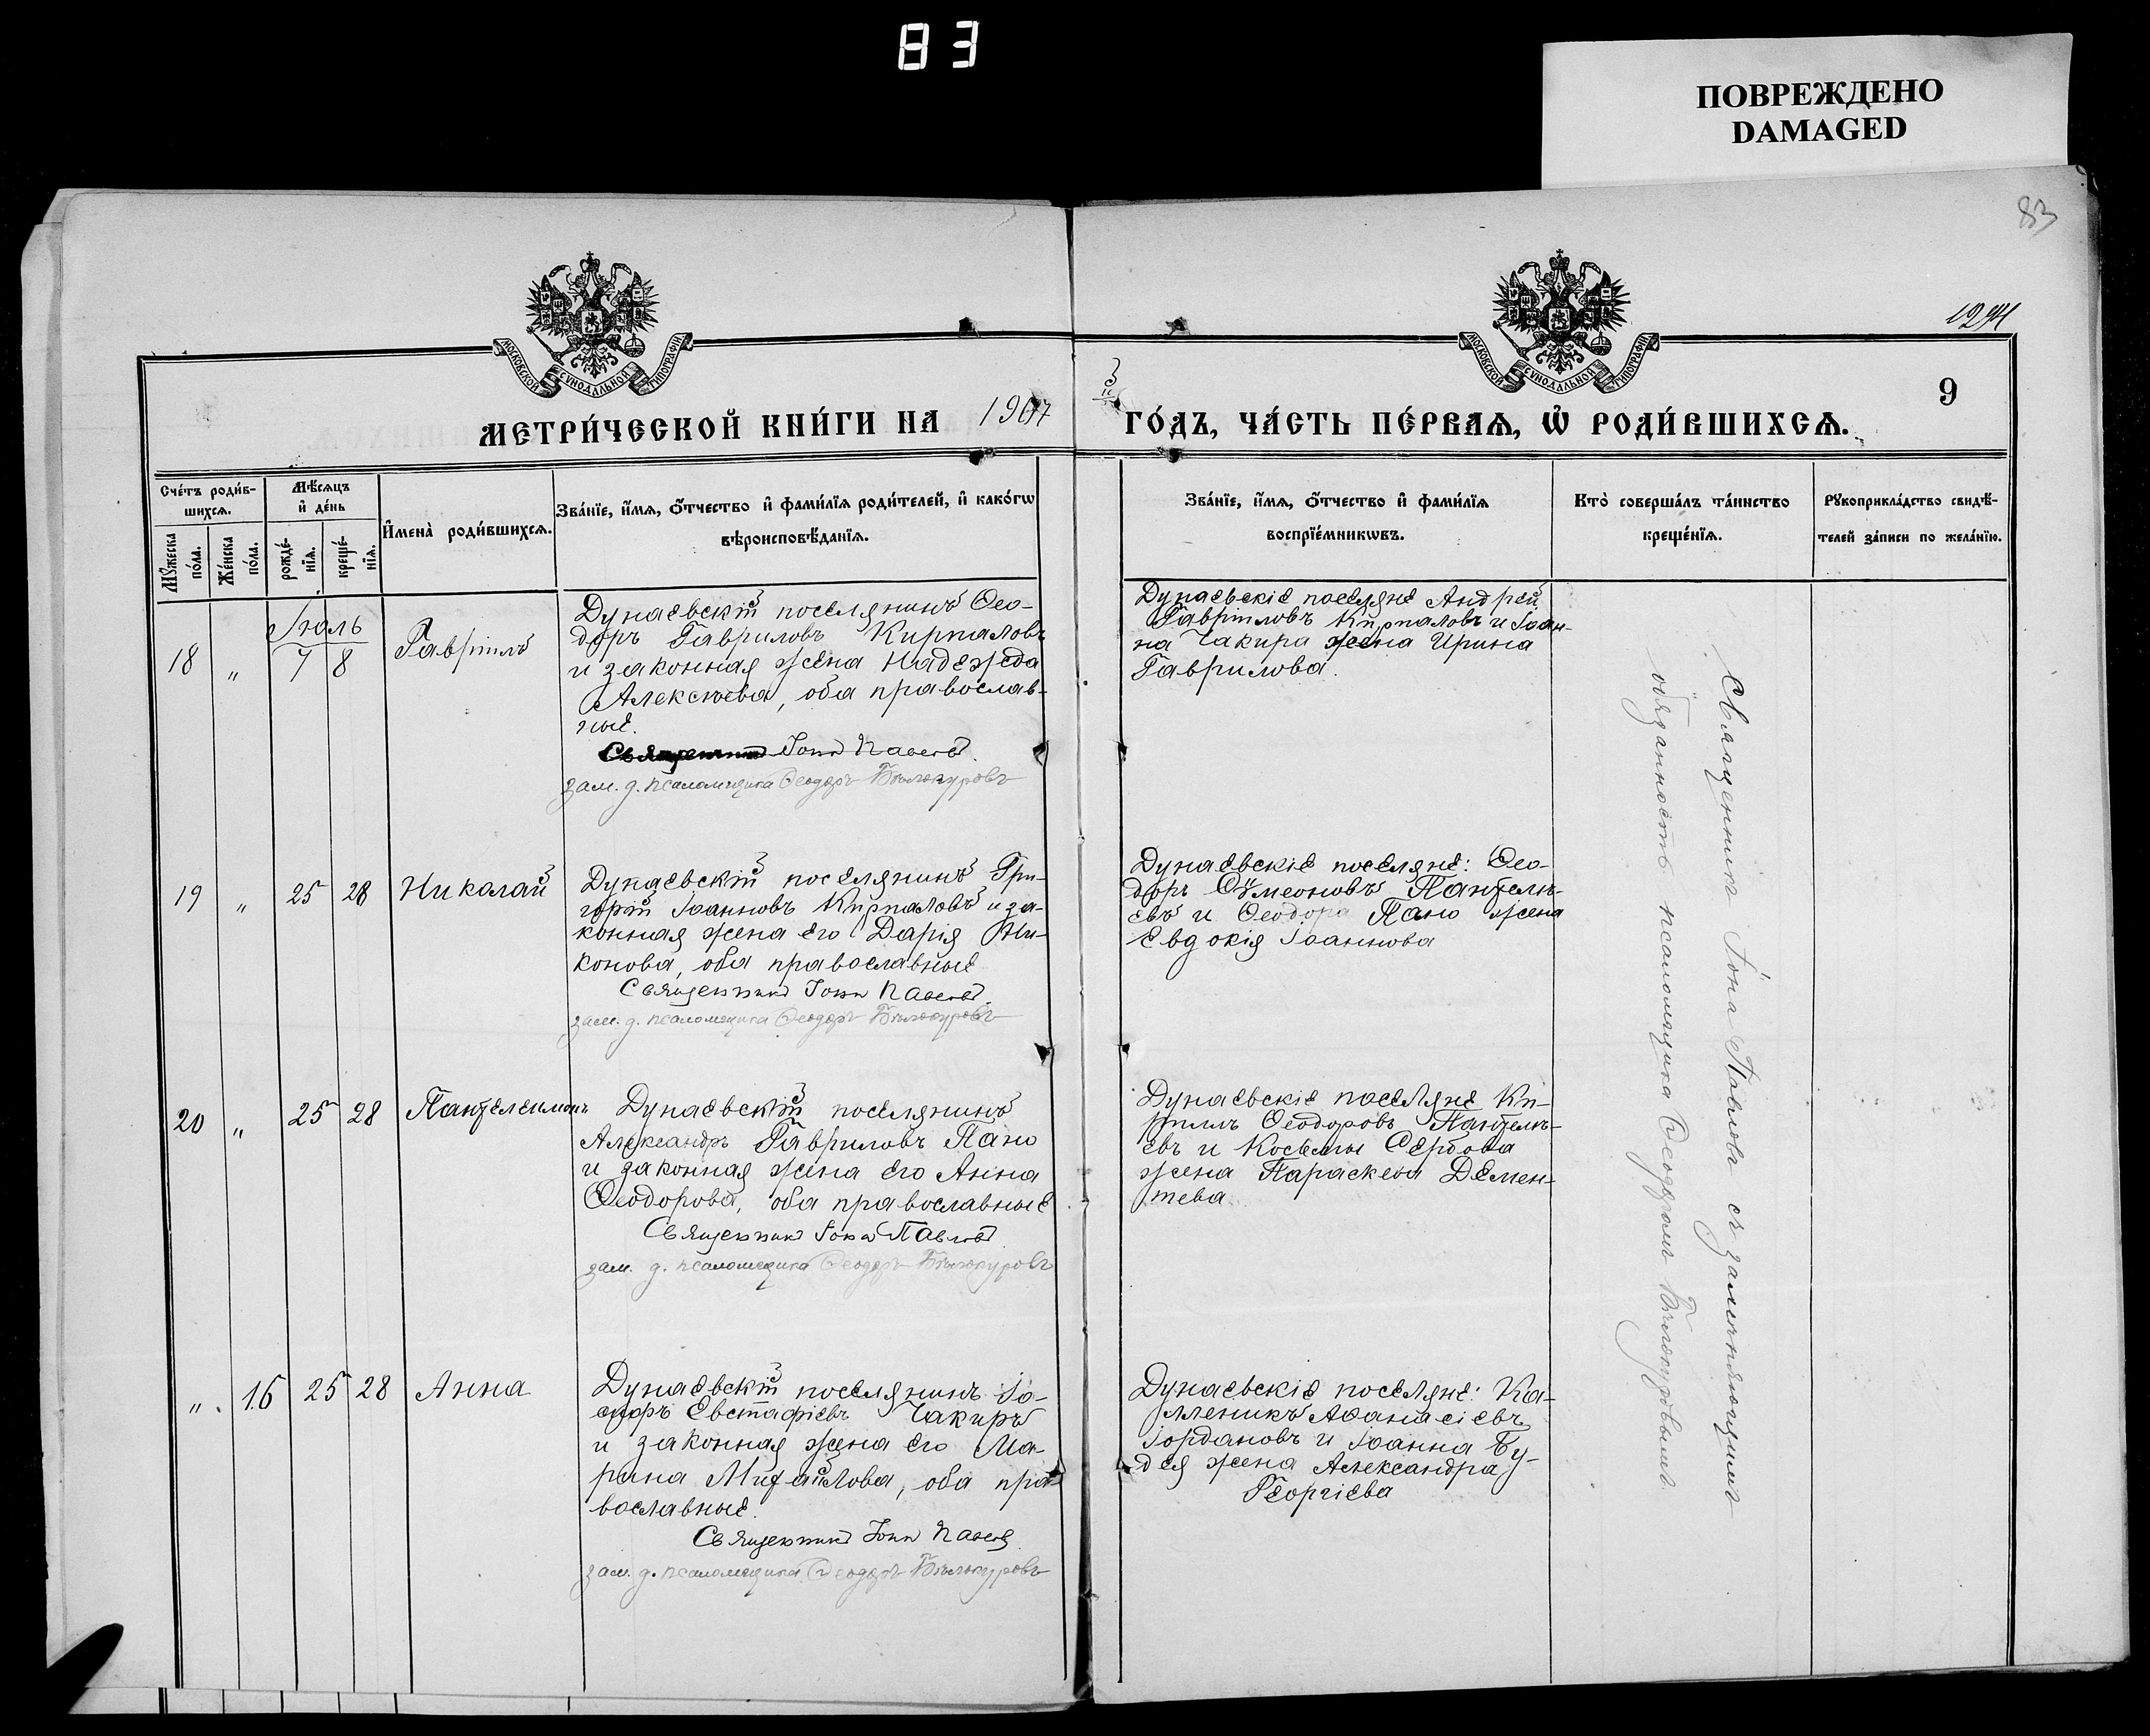 83
ПОВРЕЖДЕНО
DAMAGED
83
1294
МОСКОВСКОЙ СУНОДАЛЬНОЙ ТИПОГРАФІИ
МОСКОВСКОЙ СУНОДАЛЬНОЙ ТИПОГРАФІИ
9
МЕТРИ́ЧЕСКОЙ КНИ́ГИ НА 1907
ГО́ДЪ, ЧА́СТЬ ПЕ́РВАѦ, Ѡ҆ РОДИ́ВШИХСѦ.
Сче́тъ роди́в-
шихсѧ.
Мꙋ́жеска
по́ла.
Же́нска
по́ла.
Мѣ́сѧцъ
и҆ де́нь
рожде́-
нїѧ.
креще́-
нїѧ.
И҆мена̀ роди́вшихсѧ.
Зва́нїе, и҆́мѧ, ѻ҆́тчество и҆ фами́лїѧ роди́телей, и҆ како́гѡ
вѣроисповѣ́данїѧ.
Зва́нїе, и҆́мѧ, ѻ҆́тчество и҆ фами́лїѧ
воспрїе́мникѡвъ.
Кто̀ соверша́лъ та́инство
креще́нїѧ.
Рꙋкоприкла́дство свидѣ́-
телей за́писи по жела́нїю.
Іюль
18 " 7 8 Гавріилъ
Дунаевскій поселянинъ Ѳео-
доръ Гавриловъ Кирпаловъ
и законная жена Надежда
Алексѣева, оба православ-
ные.
Священникъ Іона Павловъ.
зам. д. псаломщика Ѳеодоръ Бѣлокуровъ
Дунаевскіе поселяне Андрей
Гавріиловъ Кирпаловъ и Іоан-
на Чакира жена Ирина
Гаврилова.
19 " 25 28 Николай
Дунаевскій поселянинъ Гри-
горій Іоанновъ Кирпаловъ и за-
конная жена его Дарія Ни-
конова, оба православные
Священникъ Іона Павловъ.
зам. д. псаломщика Ѳеодоръ Бѣлокуровъ
Дунаевскіе поселяне: Ѳео-
доръ Сѵмеоновъ Пантелѣ-
евъ и Ѳеодора Пано жена
Евдокія Іоаннова
20 " 25 28 Пантелеимонъ
Дунаевскій поселянинъ
Александръ Гавриловъ Пано
и законная жена его Анна
Ѳеодорова, оба православные
Священникъ Іона Павловъ
зам. д. псаломщика Ѳеодоръ Бѣлокуровъ
Дунаевскіе поселяне Ки-
риллъ Ѳеодоровъ Пантелѣ-
евъ и Косьмы Сербова
жена Параскева Демен-
тева
" 16 25 28 Анна
Дунаевскій поселянинъ Іо-
сифъ Евстафіевъ Чакиръ
и законная жена его Ма-
рина Михайлова, оба пра-
вославные.
Священникъ Іона Павловъ
зам. д. псаломщика Ѳеодоръ Бѣлокуровъ
Дунаевскіе поселяне: Ка-
лленикъ Аѳанасіевъ
Іордановъ и Іоанна Бу-
дея жена Александра
Георгіева
Священникъ Іона Павловъ съ замѣняющимъ
обязанность псаломщика Ѳеодоромъ Бѣлокуровымъ.